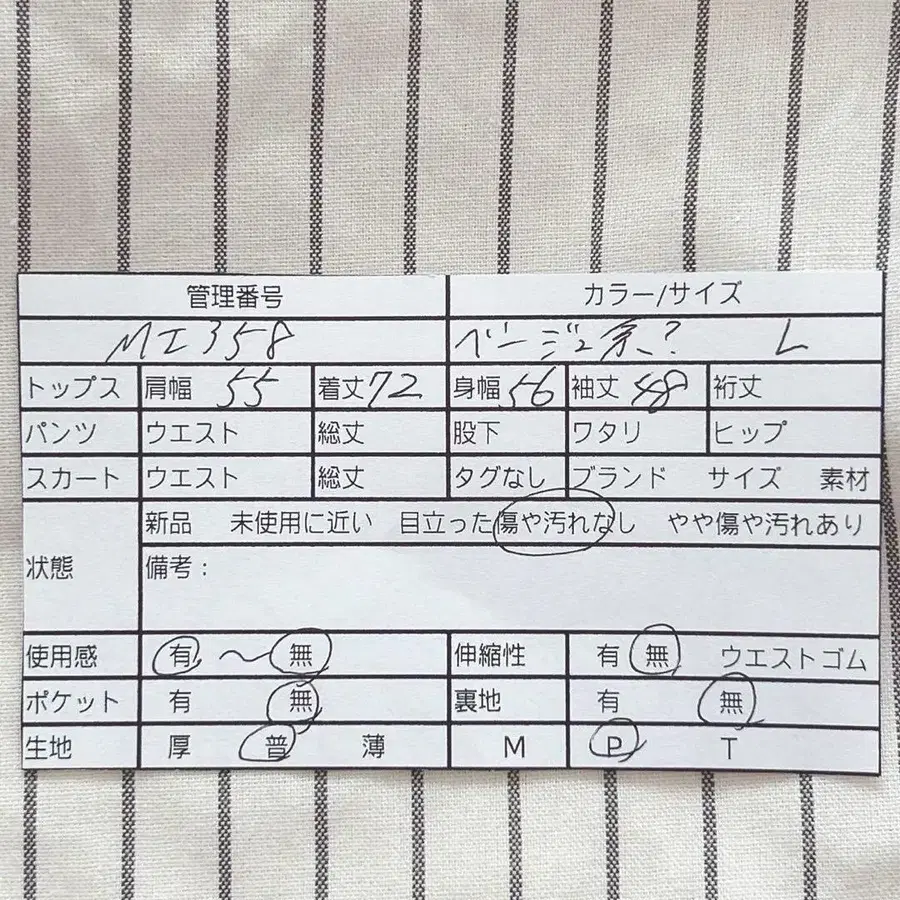 管理番号 カラー/サイズ
MI358 ベージュ系? L
トップス 肩幅 55 着丈 72 身幅 56 袖丈 48 裄丈
パンツ ウエスト 総丈 股下 ワタリ ヒップ
スカート ウエスト 総丈 タグなし ブランド サイズ 素材
新品 未使用に近い 目立った傷や汚れなし やや傷や汚れあり
状態 備考:
使用感 有 〜 無 伸縮性 有 無 ウエストゴム
ポケット 有 無 裏地 有 無
生地 厚 普 薄 M P T